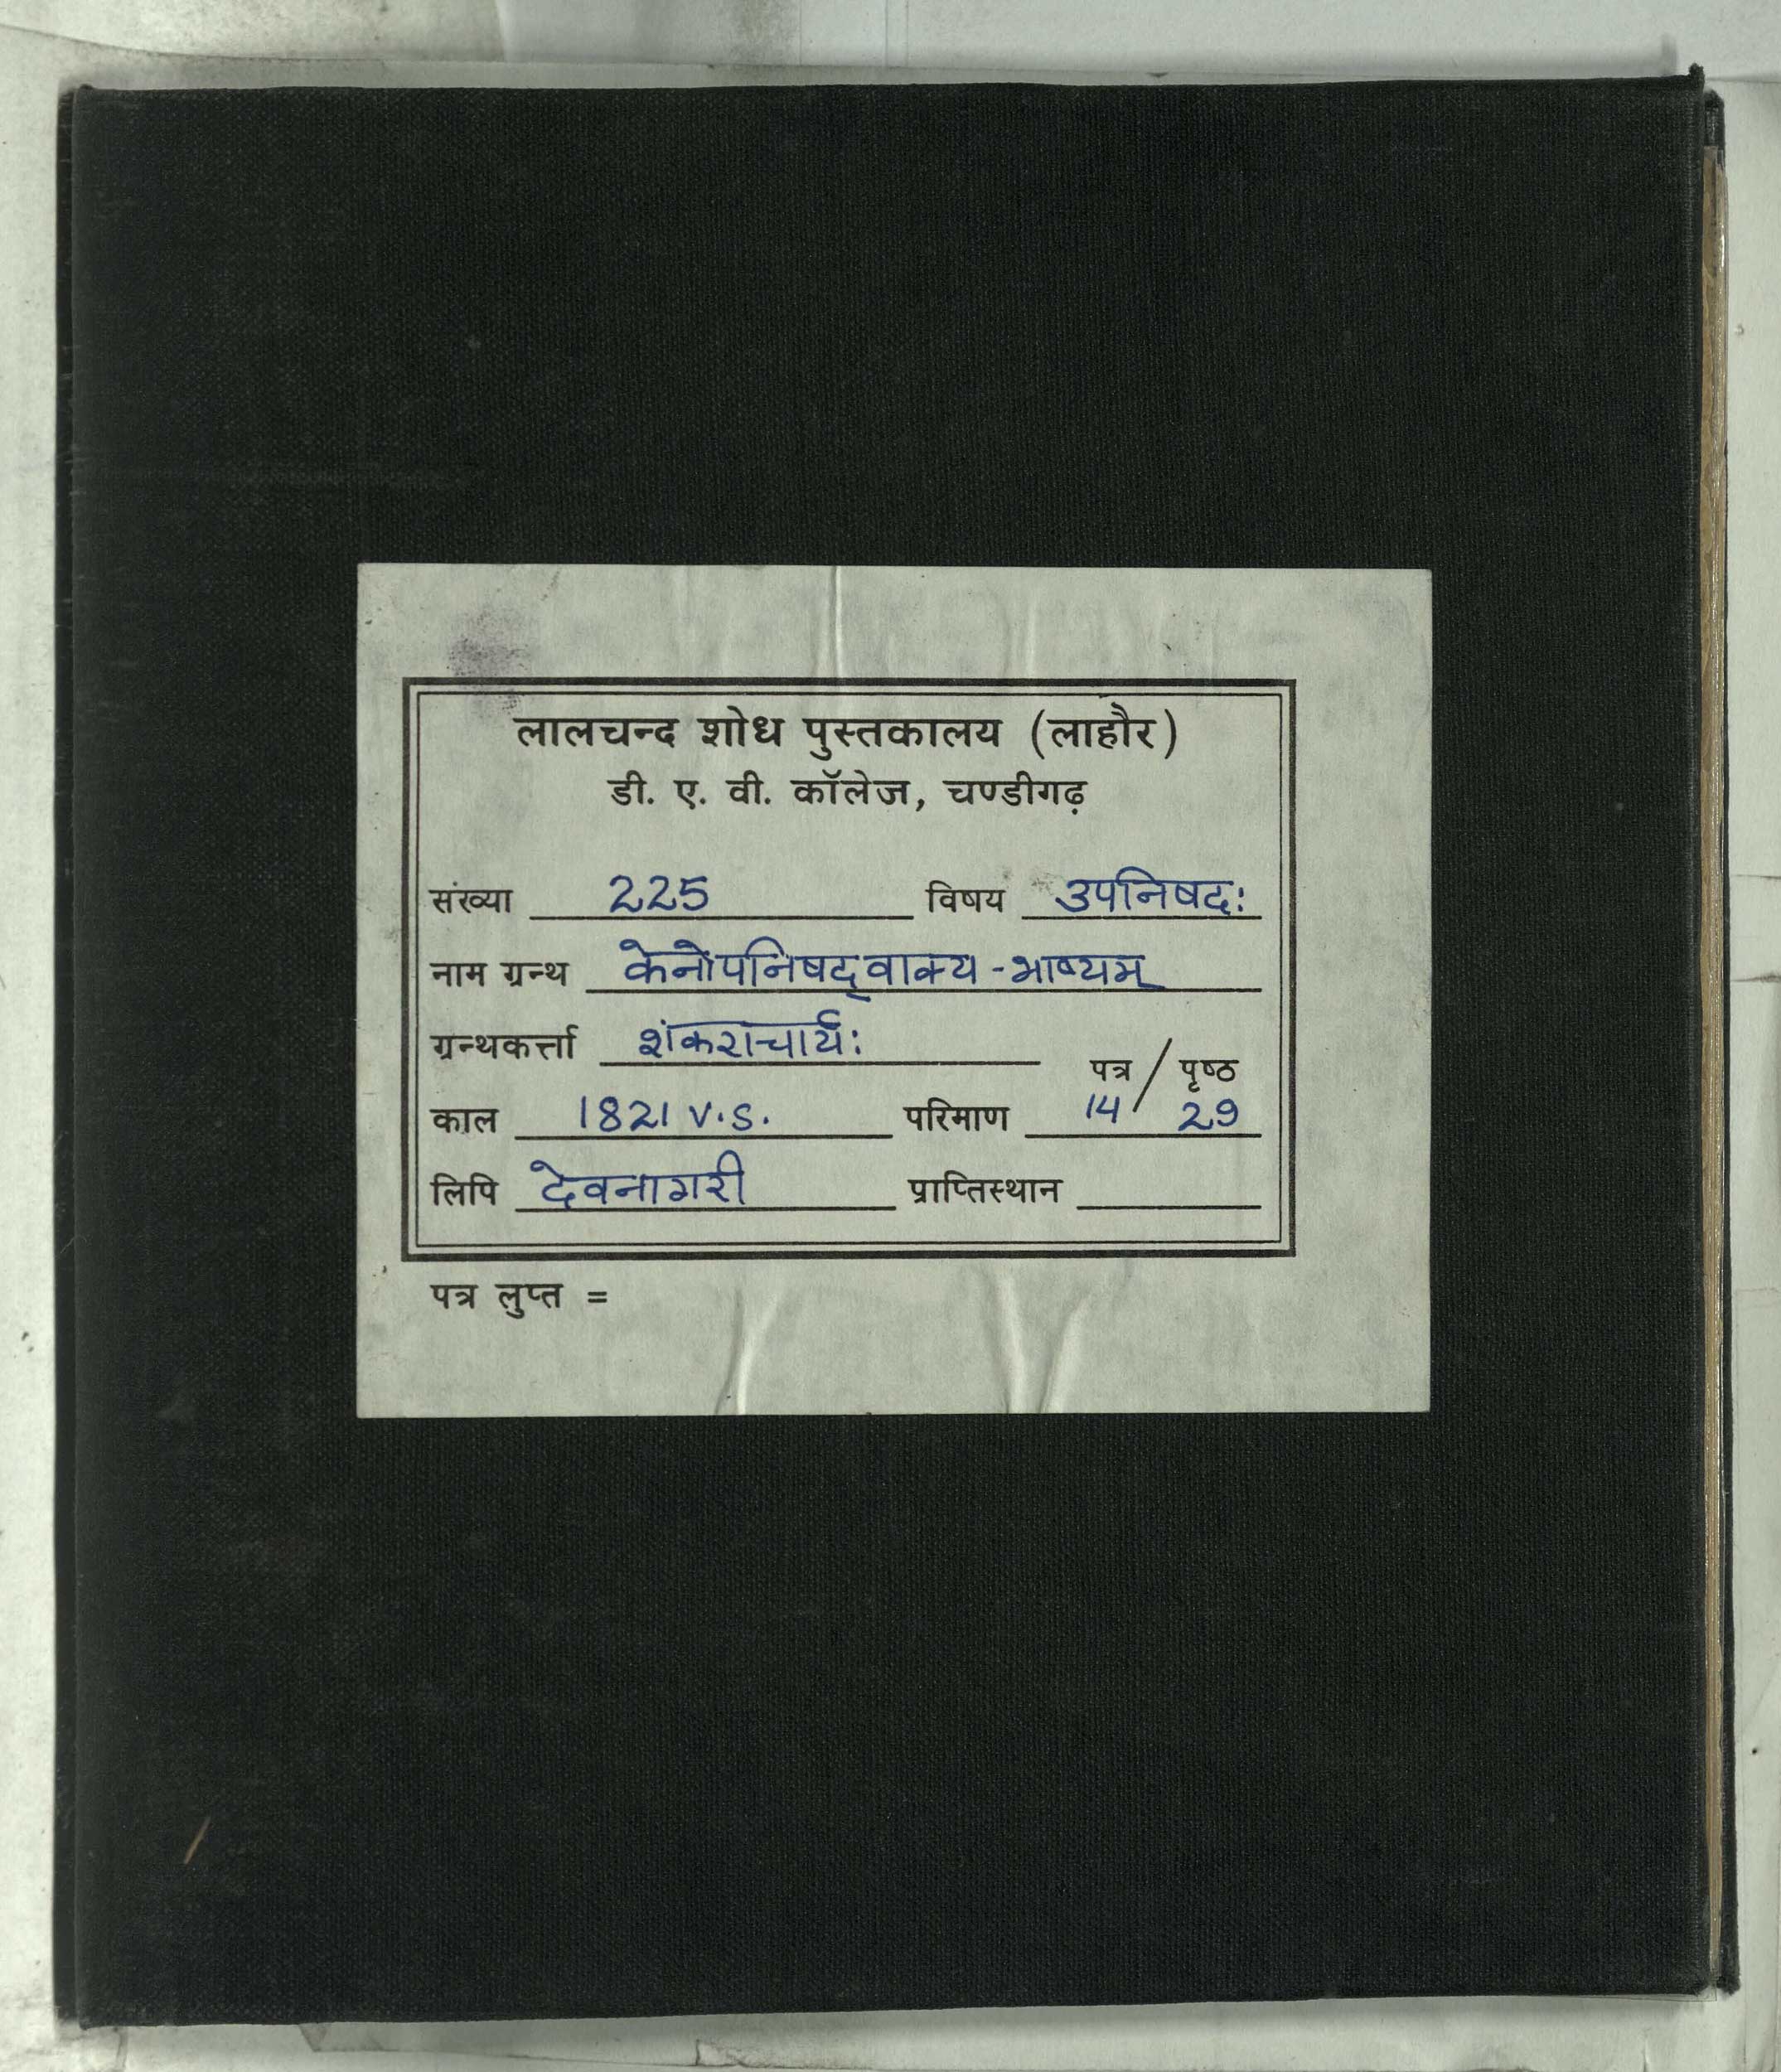 लालचन्द शोध पुस्तकालय (लाहौर)
डी. ए. वी. कॉलेज, चण्डीगढ़
संख्या 225 विषय उपनिषद:
नाम ग्रन्थ केनोपनिषद्वाक्य-भाष्यम्
ग्रन्थकर्त्ता शंकराचार्य:
पत्र / पृष्ठ
काल 1821 V.S. परिमाण 14 / 29
लिपि देवनागरी प्राप्तिस्थान
पत्र लुप्त =